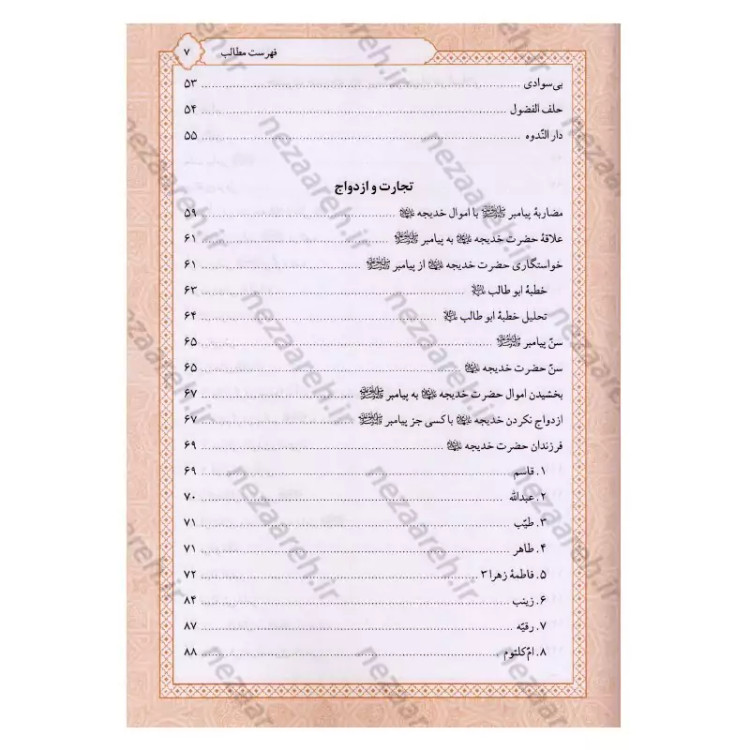 فهرست مطالب ۷
بی‌سوادی ۵۳
حلف الفضول ۵۴
دار النّدوه ۵۵
تجارت و ازدواج
مضاربهٔ پیامبر ﷺ با اموال خدیجه ۵۹
علاقهٔ حضرت خدیجه به پیامبر ﷺ ۶۱
خواستگاری حضرت خدیجه از پیامبر ﷺ ۶۱
خطبهٔ ابو طالب ۶۳
تحلیل خطبهٔ ابو طالب ۶۴
سنّ پیامبر ﷺ ۶۵
سنّ حضرت خدیجه ۶۵
بخشیدن اموال حضرت خدیجه به پیامبر ﷺ ۶۷
ازدواج نکردن خدیجه با کسی جز پیامبر ﷺ ۶۷
فرزندان حضرت خدیجه ۶۹
۱. قاسم ۶۹
۲. عبدالله ۷۰
۳. طیّب ۷۱
۴. طاهر ۷۱
۵. فاطمهٔ زهرا۳ ۷۲
۶. زینب ۸۴
۷. رقیّه ۸۷
۸. امّ کلثوم ۸۸
nezaareh.ir